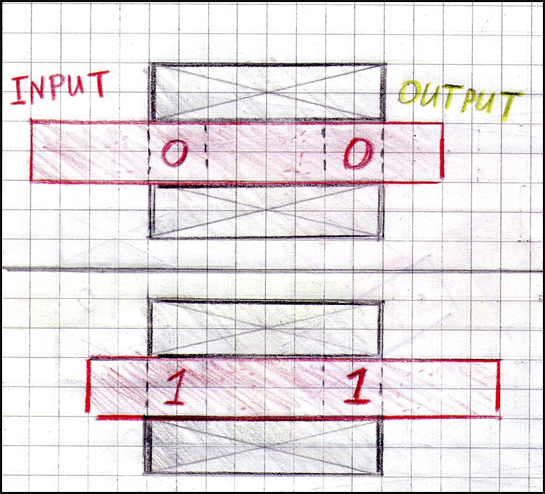 INPUT
OUTPUT
0 0
1 1